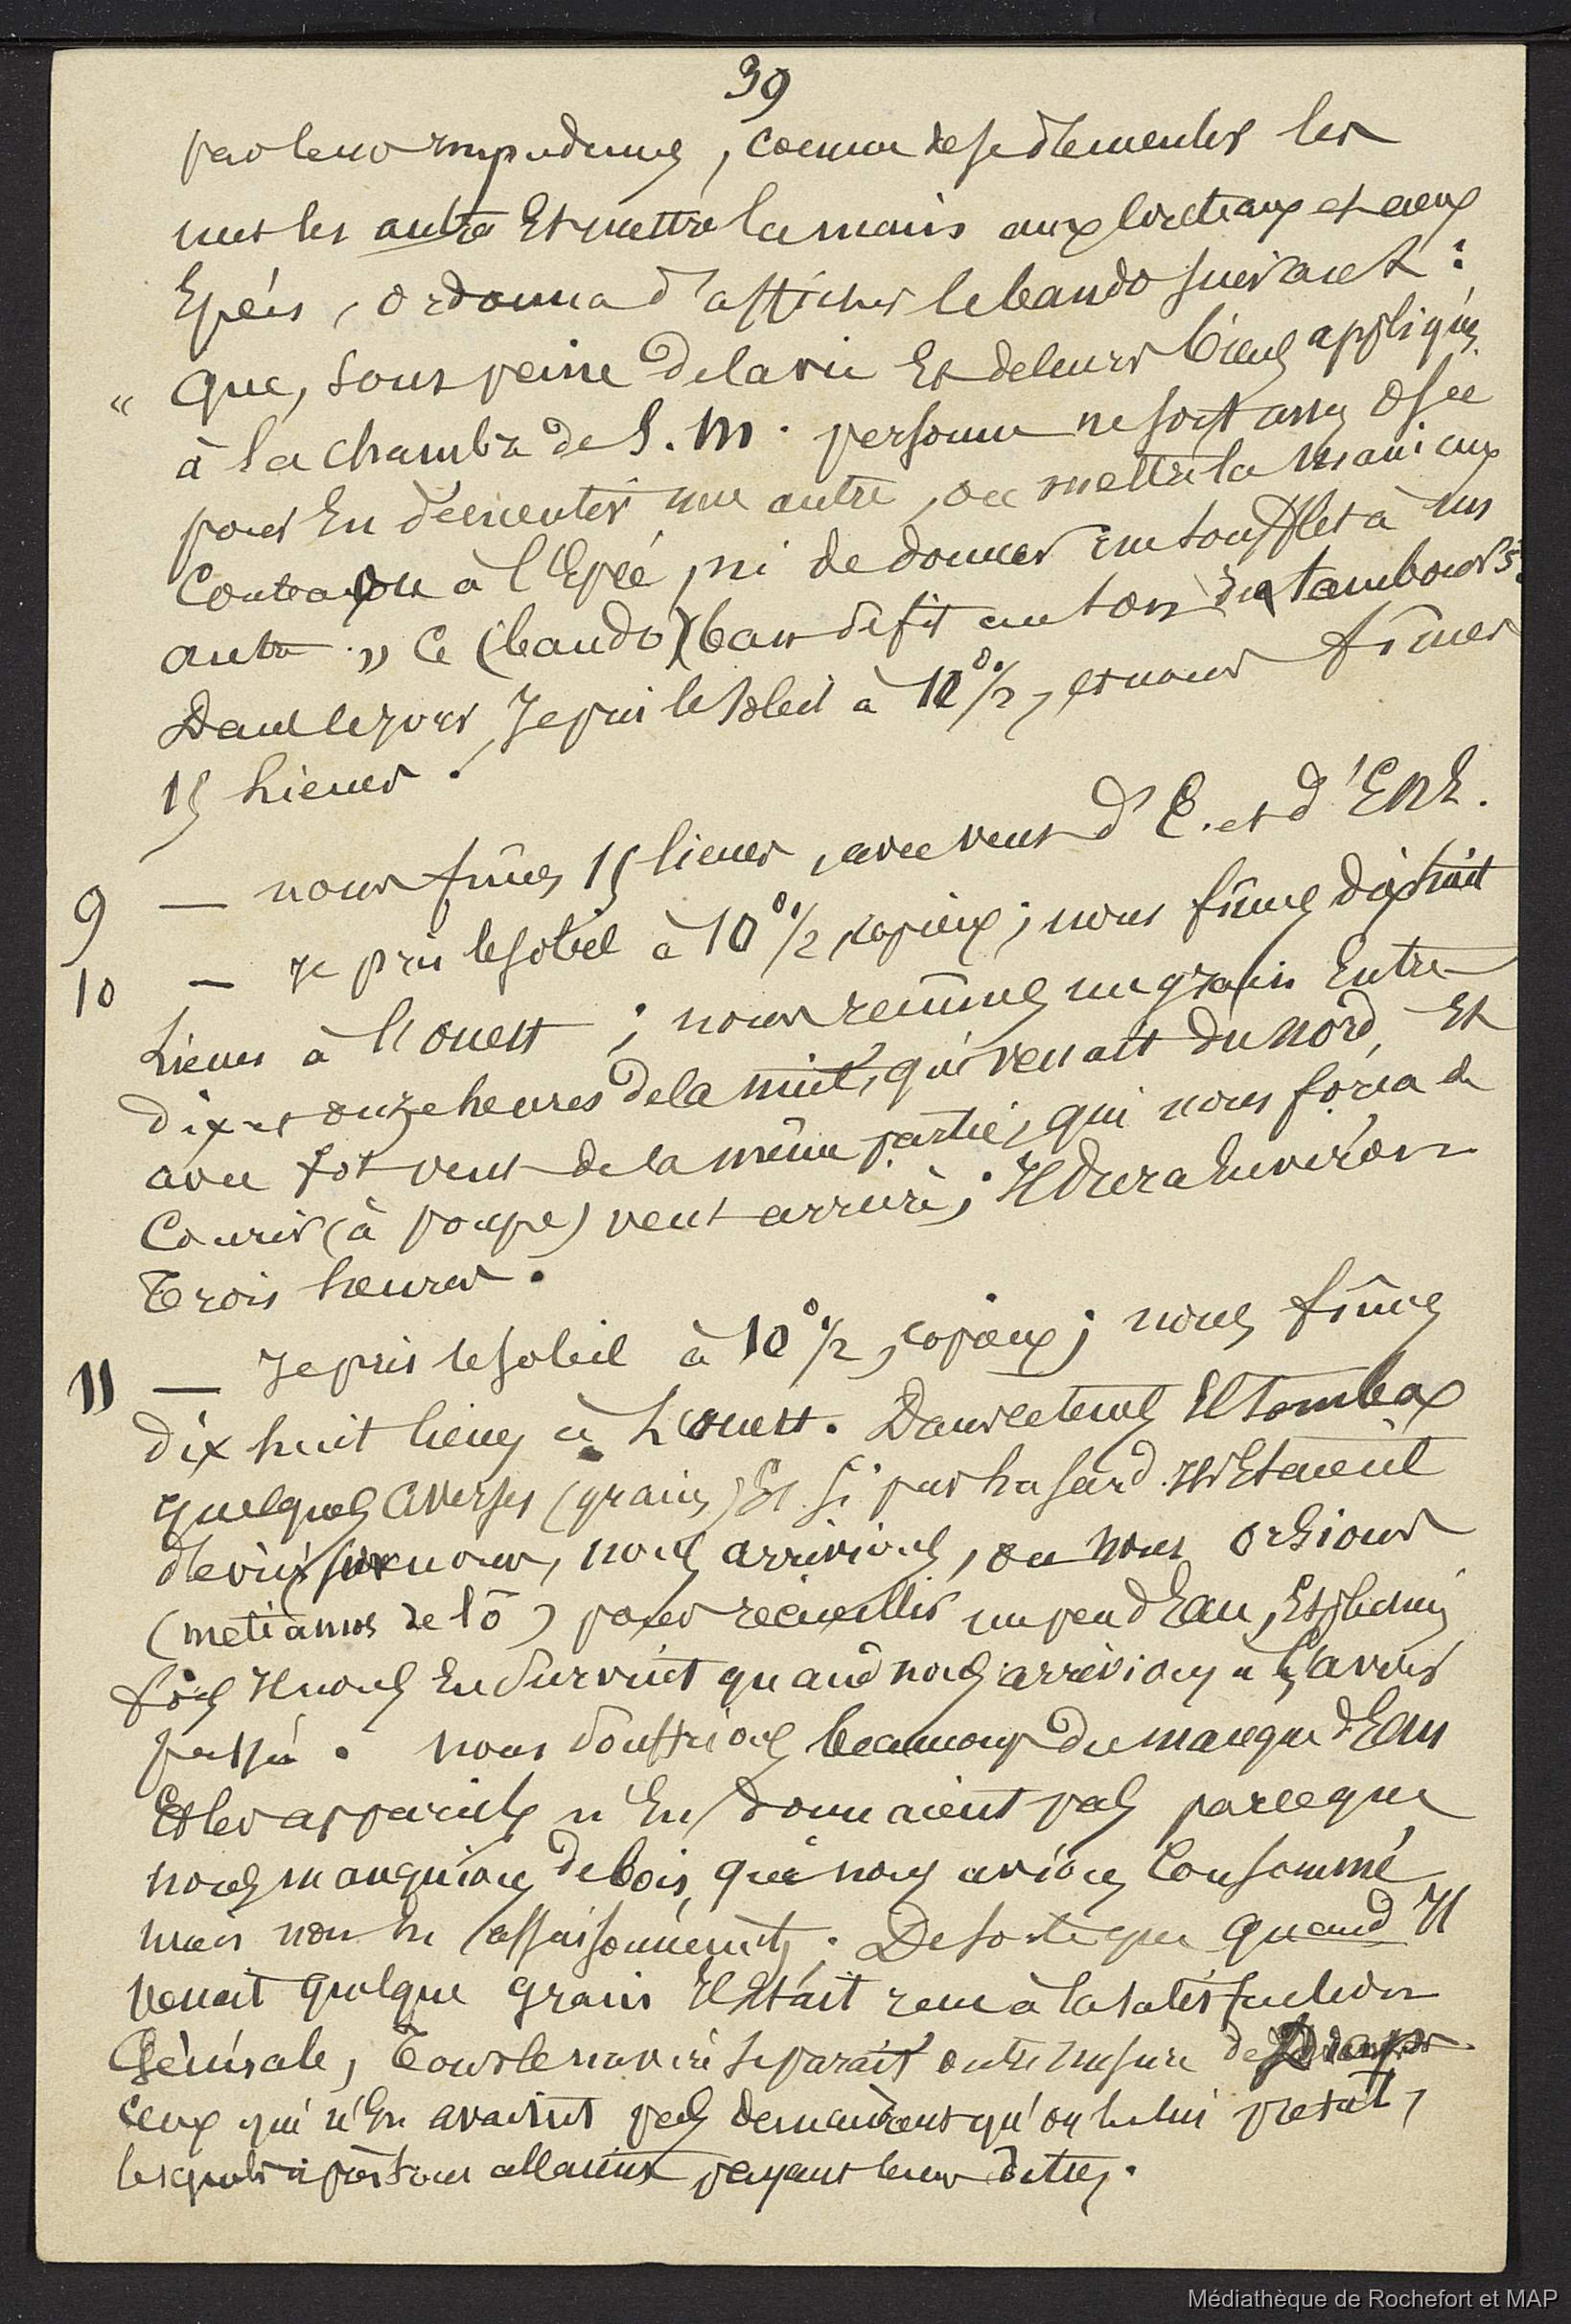 39
par leur impudence, comme de se démentir les
uns les autres Et mettre la main aux couteaux et aux
Epées, ordonna d'afficher le bando suivant :
« Que, sous peine de la vie Et de leurs biens appliqués
à la chambre de S. M. personne ne soit assez osée
pour En démentir une autre, ou mettre la main aux
Couteau ou à l'Epée, ni de donner un soufflet à un
autre ». Ce (bando) (ban se fit au son de tambours.
Dans ce jour, Je pris le soleil à 10° 1/2, et nous fîmes
15 lieues.
9 — nous fîmes 15 lieues, avec vent d'E. et d'ENE.
10 — Je pris le soleil à 10° 1/2, copieux ; nous fîmes dix huit
Lieues à l'ouest ; nous reçûmes un grain Entre
dix et onze heures de la nuit, qui venait du nord, Et
avec fort vent de la même partie, qui nous força de
Courir (à poupe) vent arrière ; Il dura Environ
Trois heures.
11 — Je pris le soleil à 10° 1/2, copieux ; nous fîmes
dix huit lieues à l'ouest. Dans ce temps Il tomba
quelques averses (grains) Et si par hasard Ils Etaient
sur nous, nous arrivions, ou nous orsions
(metiamos de ló) pour recueillir un peu d'Eau, Et plusieurs
fois Il nous En survint quand nous arrivions à l'avoir
passé. nous souffrions beaucoup du manque d'Eau
Et les appareils n'En donnaient pas parce que
nous manquions de bois, que nous avions Consommé
mais non en assaisonnements ; De sorte que quand Il
venait quelque grain Il Etait reçu à la satisfaction
Générale, Tout le navire se parait outre mesure de Draps
Ceux qui n'En avaient pas demandaient qu'on le lui prêtat,
lesquels après tous allaient payant leur dettes.
Médiathèque de Rochefort et MAP